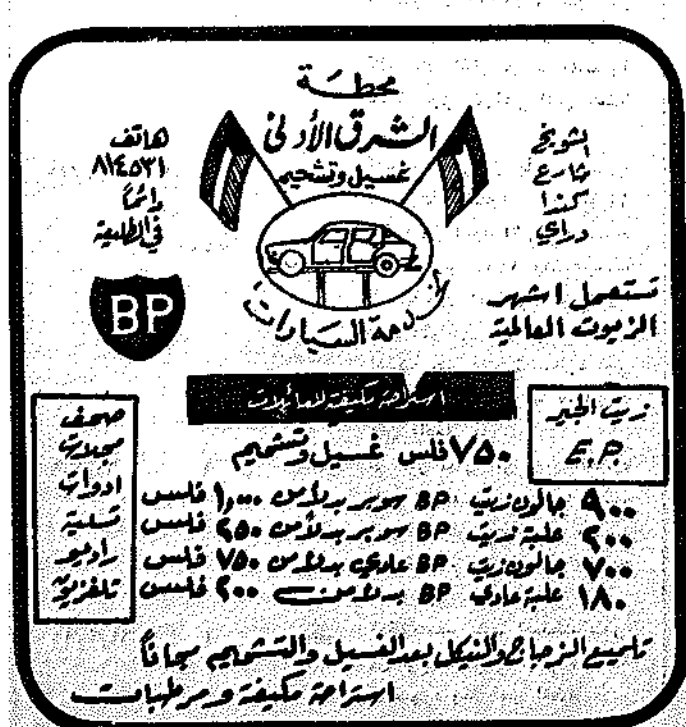 محطة
الشرق الأدنى
غسيل وتشحيم
لخدمة السيارات
الشويخ
شارع
كندا
دراي
هاتف
٨١٤٥٣١
دائماً
في الطليعة
BP
تستعمل اشهر
الزيوت العالمية
استراحة مكيفة للعائلات
زيت الجير
٧٥٠ فلس غسيل وتشحيم
٩٠٠ جالون زيت BP سوبر بدلاً من ١,٠٠٠ فلس
٢٠٠ علبة زيت BP سوبر بدلاً من ٢٥٠ فلس
٧٠٠ جالون زيت BP عادي بدلاً من ٧٥٠ فلس
١٨٠ علبة عادي BP بدلاً من ٢٠٠ فلس
صحف
مجلات
ادوات
تسلية
راديو
تلفزيون
تلميع الزجاج والنيكل بعد الغسيل والتشحيم مجاناً
استراحة مكيفة ومرطبات